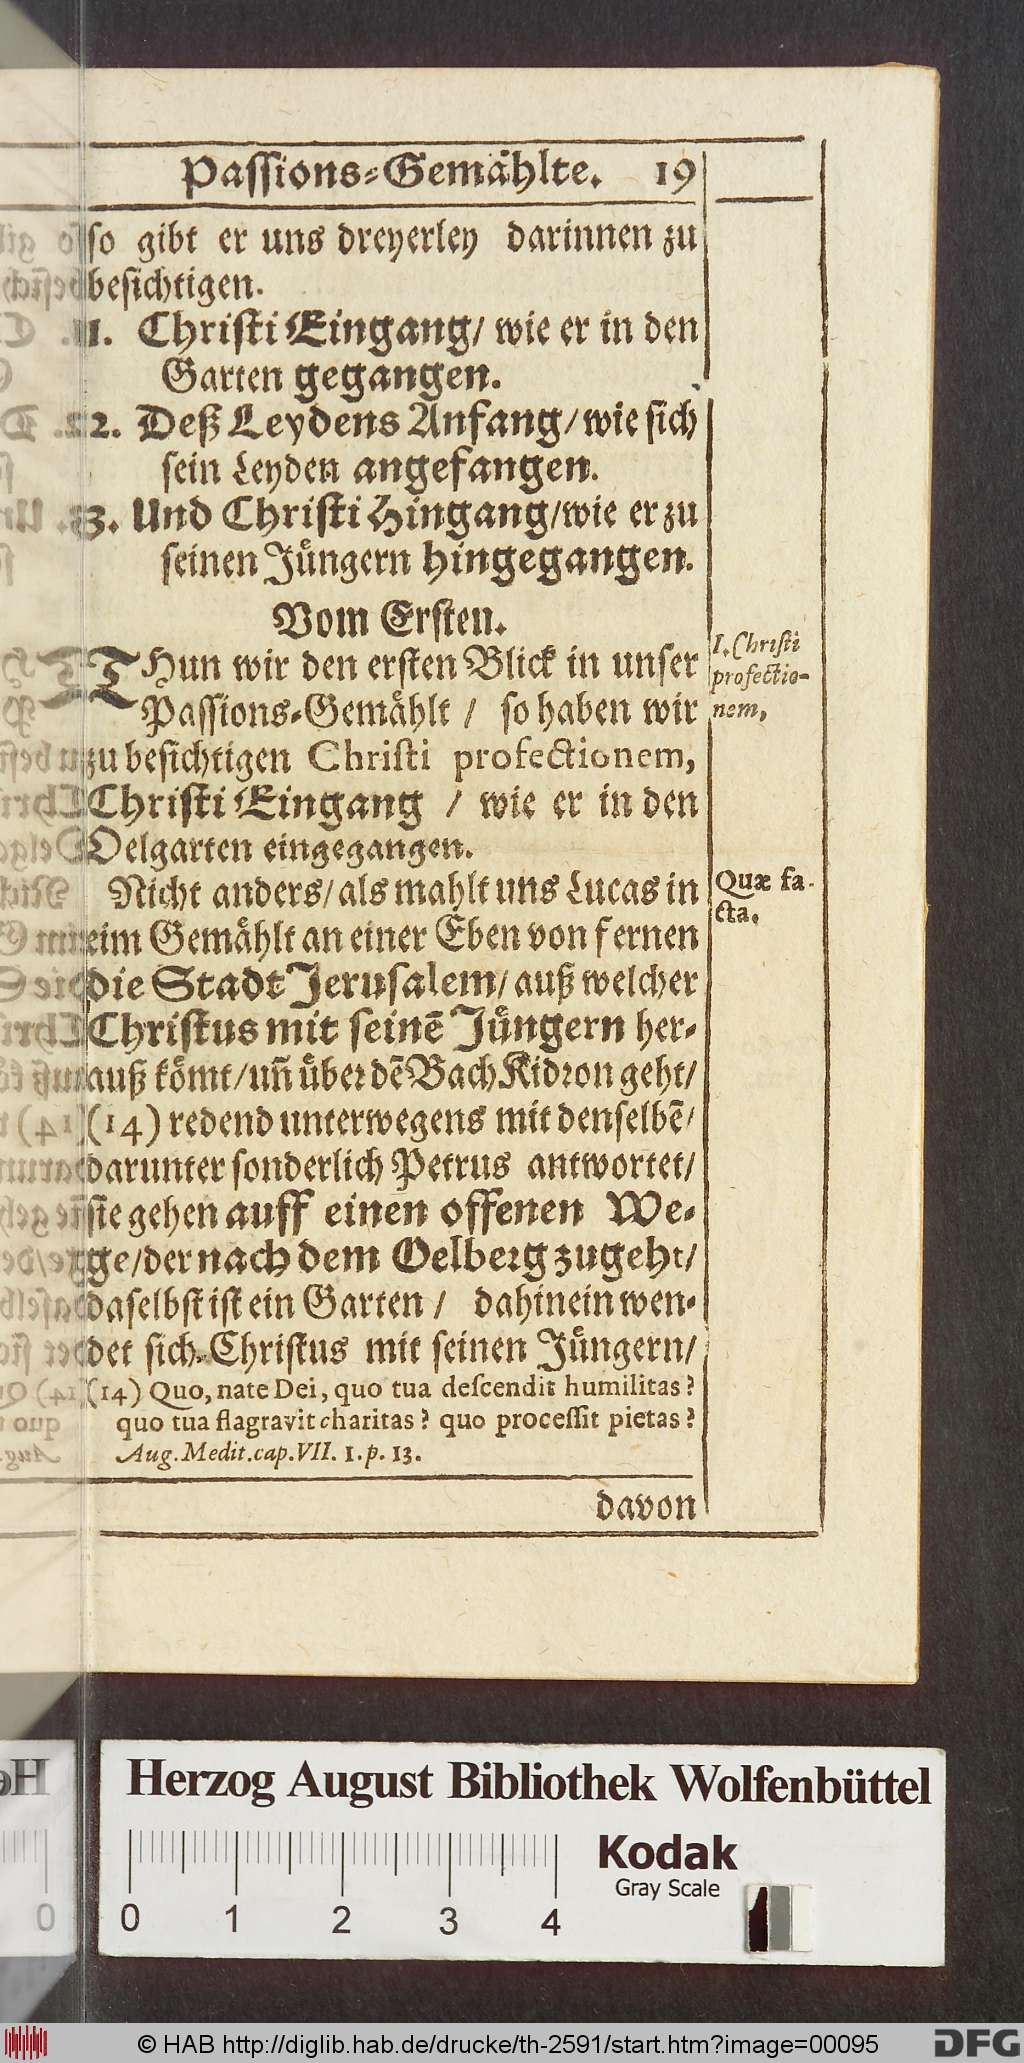 Passions-Gemählte. 19
so gibt er uns dreyerley darinnen zu
besichtigen.
1. Christi Eingang/ wie er in den
Garten gegangen.
2. Deß Leydens Anfang/ wie sich
sein Leyden angefangen.
3. Und Christi Hingang/ wie er zu
seinen Jüngern hingegangen.
Vom Ersten.
THun wir den ersten Blick in unser
Passions-Gemählt / so haben wir
zu besichtigen Christi profectionem,
Christi Eingang / wie er in den
Oelgarten eingegangen.
I. Christi
profectio-
nem,
Nicht anders/ als mahlt uns Lucas in
eim Gemählt an einer Eben von fernen
die Stadt Jerusalem/ auß welcher
Christus mit seinē Jüngern her-
auß kömt/ uñ über dē Bach Kidron geht/
(14) redend unterwegens mit denselbē/
darunter sonderlich Petrus antwortet/
sie gehen auff einen offenen We-
ge/ der nach dem Oelberg zugeht/
daselbst ist ein Garten / dahinein wen-
det sich Christus mit seinen Jüngern/
Quæ fa-
cta.
(14) Quo, nate Dei, quo tua descendit humilitas?
quo tua flagravit charitas? quo processit pietas?
Aug. Medit. cap. VII. 1. p. 13.
davon
Herzog August Bibliothek Wolfenbüttel
Kodak
Gray Scale
0 1 2 3 4
© HAB http://diglib.hab.de/drucke/th-2591/start.htm?image=00095
DFG